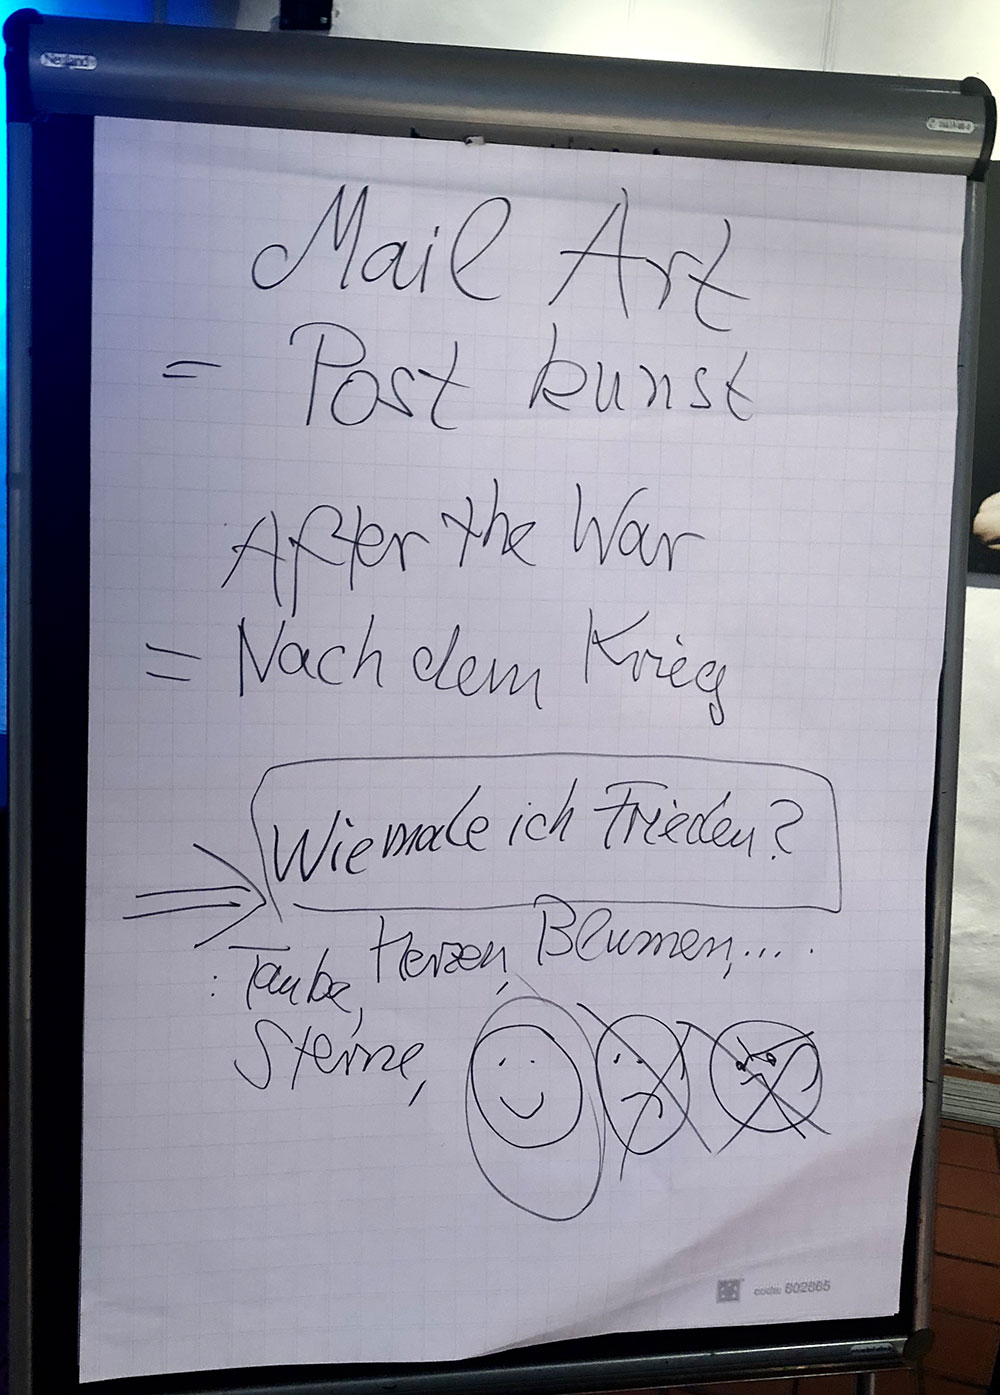 Neuland
Mail Art
= Post kunst
After the War
= Nach dem Krieg
Wie male ich Frieden?
: Taube, Herzen, Blumen, ....
Sterne,
code: 802865